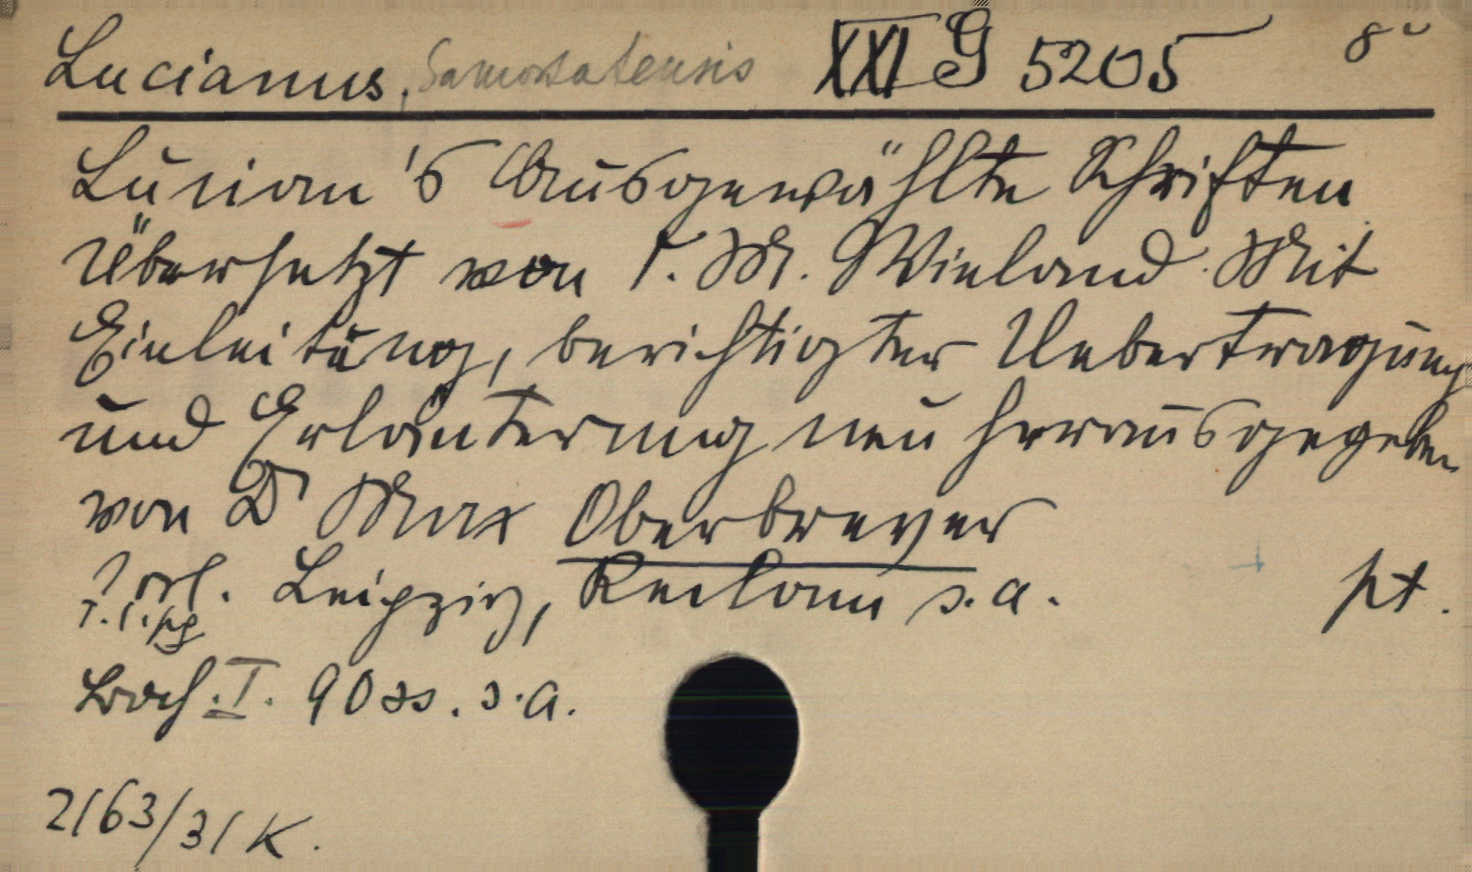 Lucianus, Samosatensis XXI G 5205 8°
Lucian's Ausgewählte Schriften
Übersetzt von C. M. Wieland. Mit
Einleitung, berichtigter Uebertragung
und Erläuterung neu herausgegeben
von Dr Max Oberbreyer
Leipzig, Reclam s.a. pt.
Bdch. I. 90 ss. s.a.
2163/31 K.